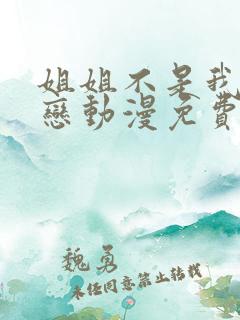 姐姐不是我
戀動漫免費
魏勇
未經同意禁止轉載